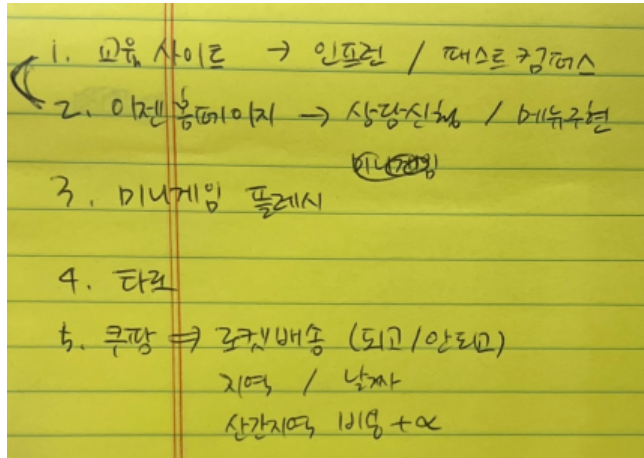 1. 교육 사이트 → 인프런 / 패스트 캠퍼스
2. 이젠 홈페이지 → 상담신청 / 메뉴구현
미니게임
3. 미니게임 플레시
4. 타로
5. 쿠팡 ⇒ 로켓배송 (되고/안되고)
지역 / 날짜
산간지역 비용 + α